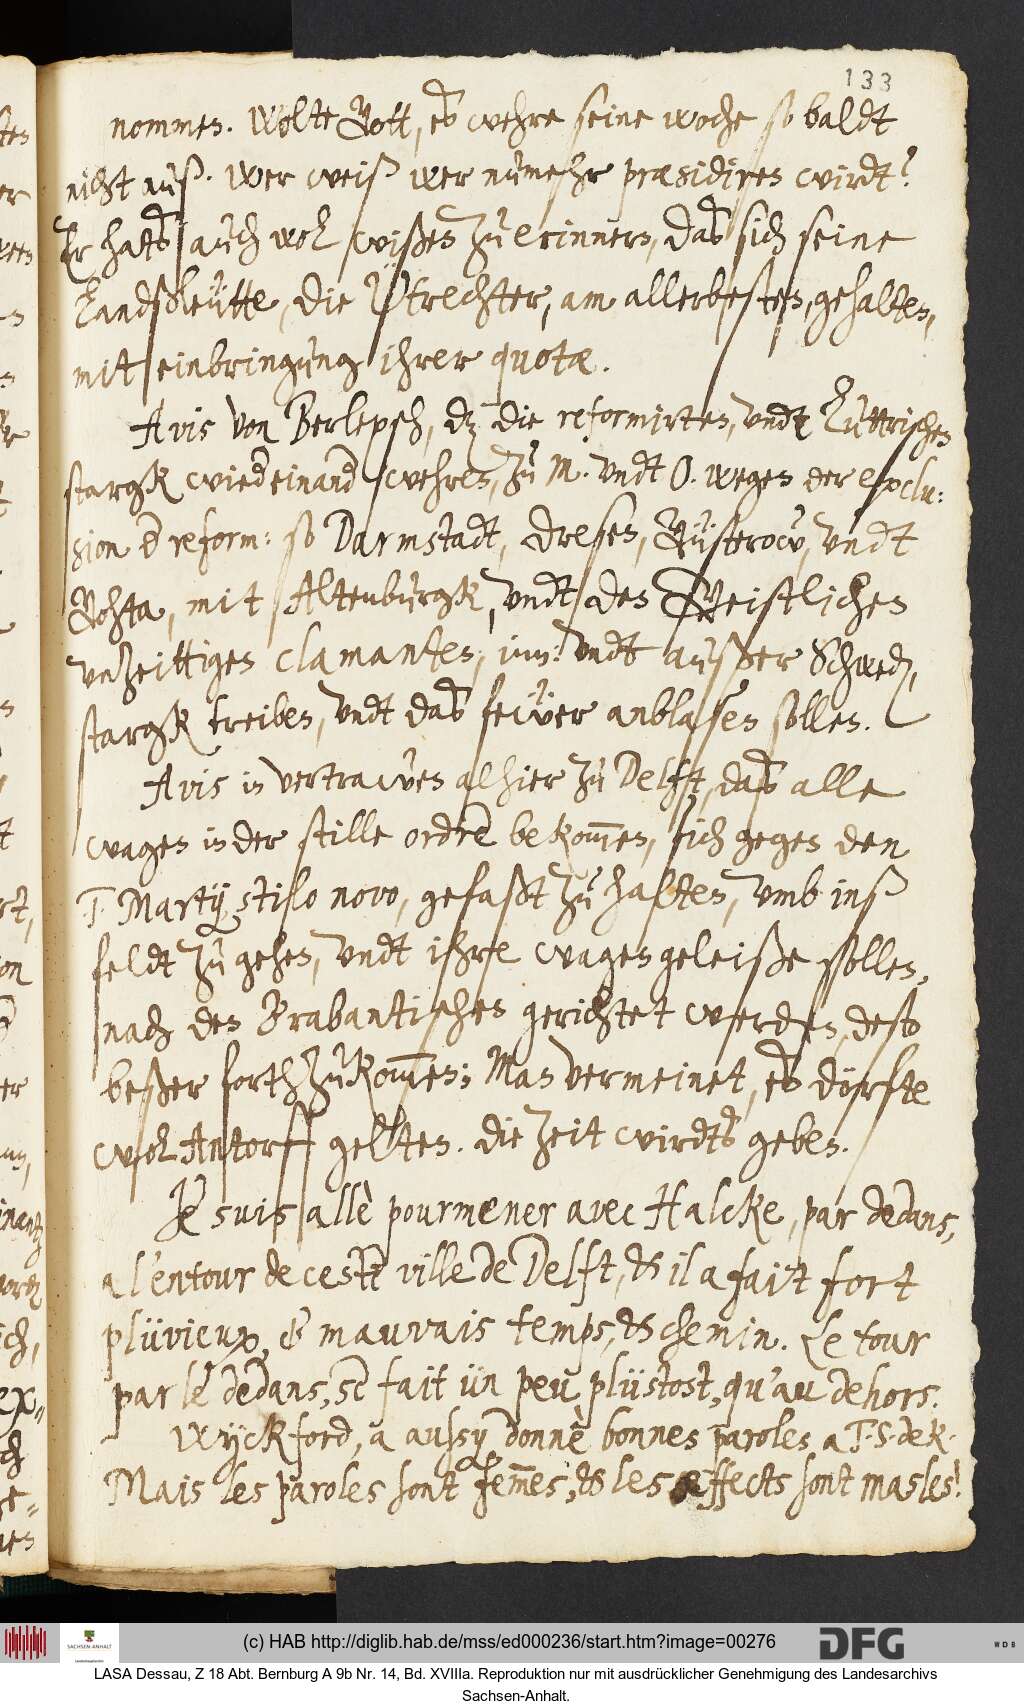 133
nommen. Wolte Gott, es wehre seine woche so baldt
nicht auß. Wer weiß wer numehr præsidiren wirdt?
Er hats auch wol wißen zu erinnern, das sich seine
Landßleütte, die Ütrechter, am allerbesten, gehalten,
mit einbringung ihrer quotæ.
Avis von Berlepsch, dz die reformirten, vndt Luttrischen
stargk wied einand wehren, zu M. vndt O. wegen der exclu:
sion d reform: so Darmstadt, Dresen, Güsterow, vndt
Gohta, mit Altenburgk, vndt den Geistlichen
vnzeittigen clamanten, inn: vndt außer Schwed,
stargk treiben, vndt das feüer anblasen sollen.
Avis in vertrawen alhier zu Delft, das alle
wagen in der stille ordre bekommen, sich gegen den
1. Martij stilo novo, gefaßt zu halten, vmb inß
feldt zu gehen, vndt ihre wagengeleiße sollen,
nach den Brabantischen gerichtet werden, desto
beßer forth zu kommen; Man vermeinet, es dörfte
wol Antorff gelten. Die Zeit wirdts geben.
Je suis allè pourmener avec Halcke, par dedans,
a l'entour de ceste ville de Delft, & il a fait fort
plüvieux, & mauvais temps, & chemin. Le tour
par le dedans, se fait ün peu plüstost, qu'au dehors.
Wyckford, a aussy donnè bonnes paroles a T. S. de k.
Mais les paroles sont femmes, & les effects sont masles!
(c) HAB http://diglib.hab.de/mss/ed000236/start.htm?image=00276
SACHSEN-ANHALT
DFG
WDB
LASA Dessau, Z 18 Abt. Bernburg A 9b Nr. 14, Bd. XVIIIa. Reproduktion nur mit ausdrücklicher Genehmigung des Landesarchivs
Sachsen-Anhalt.